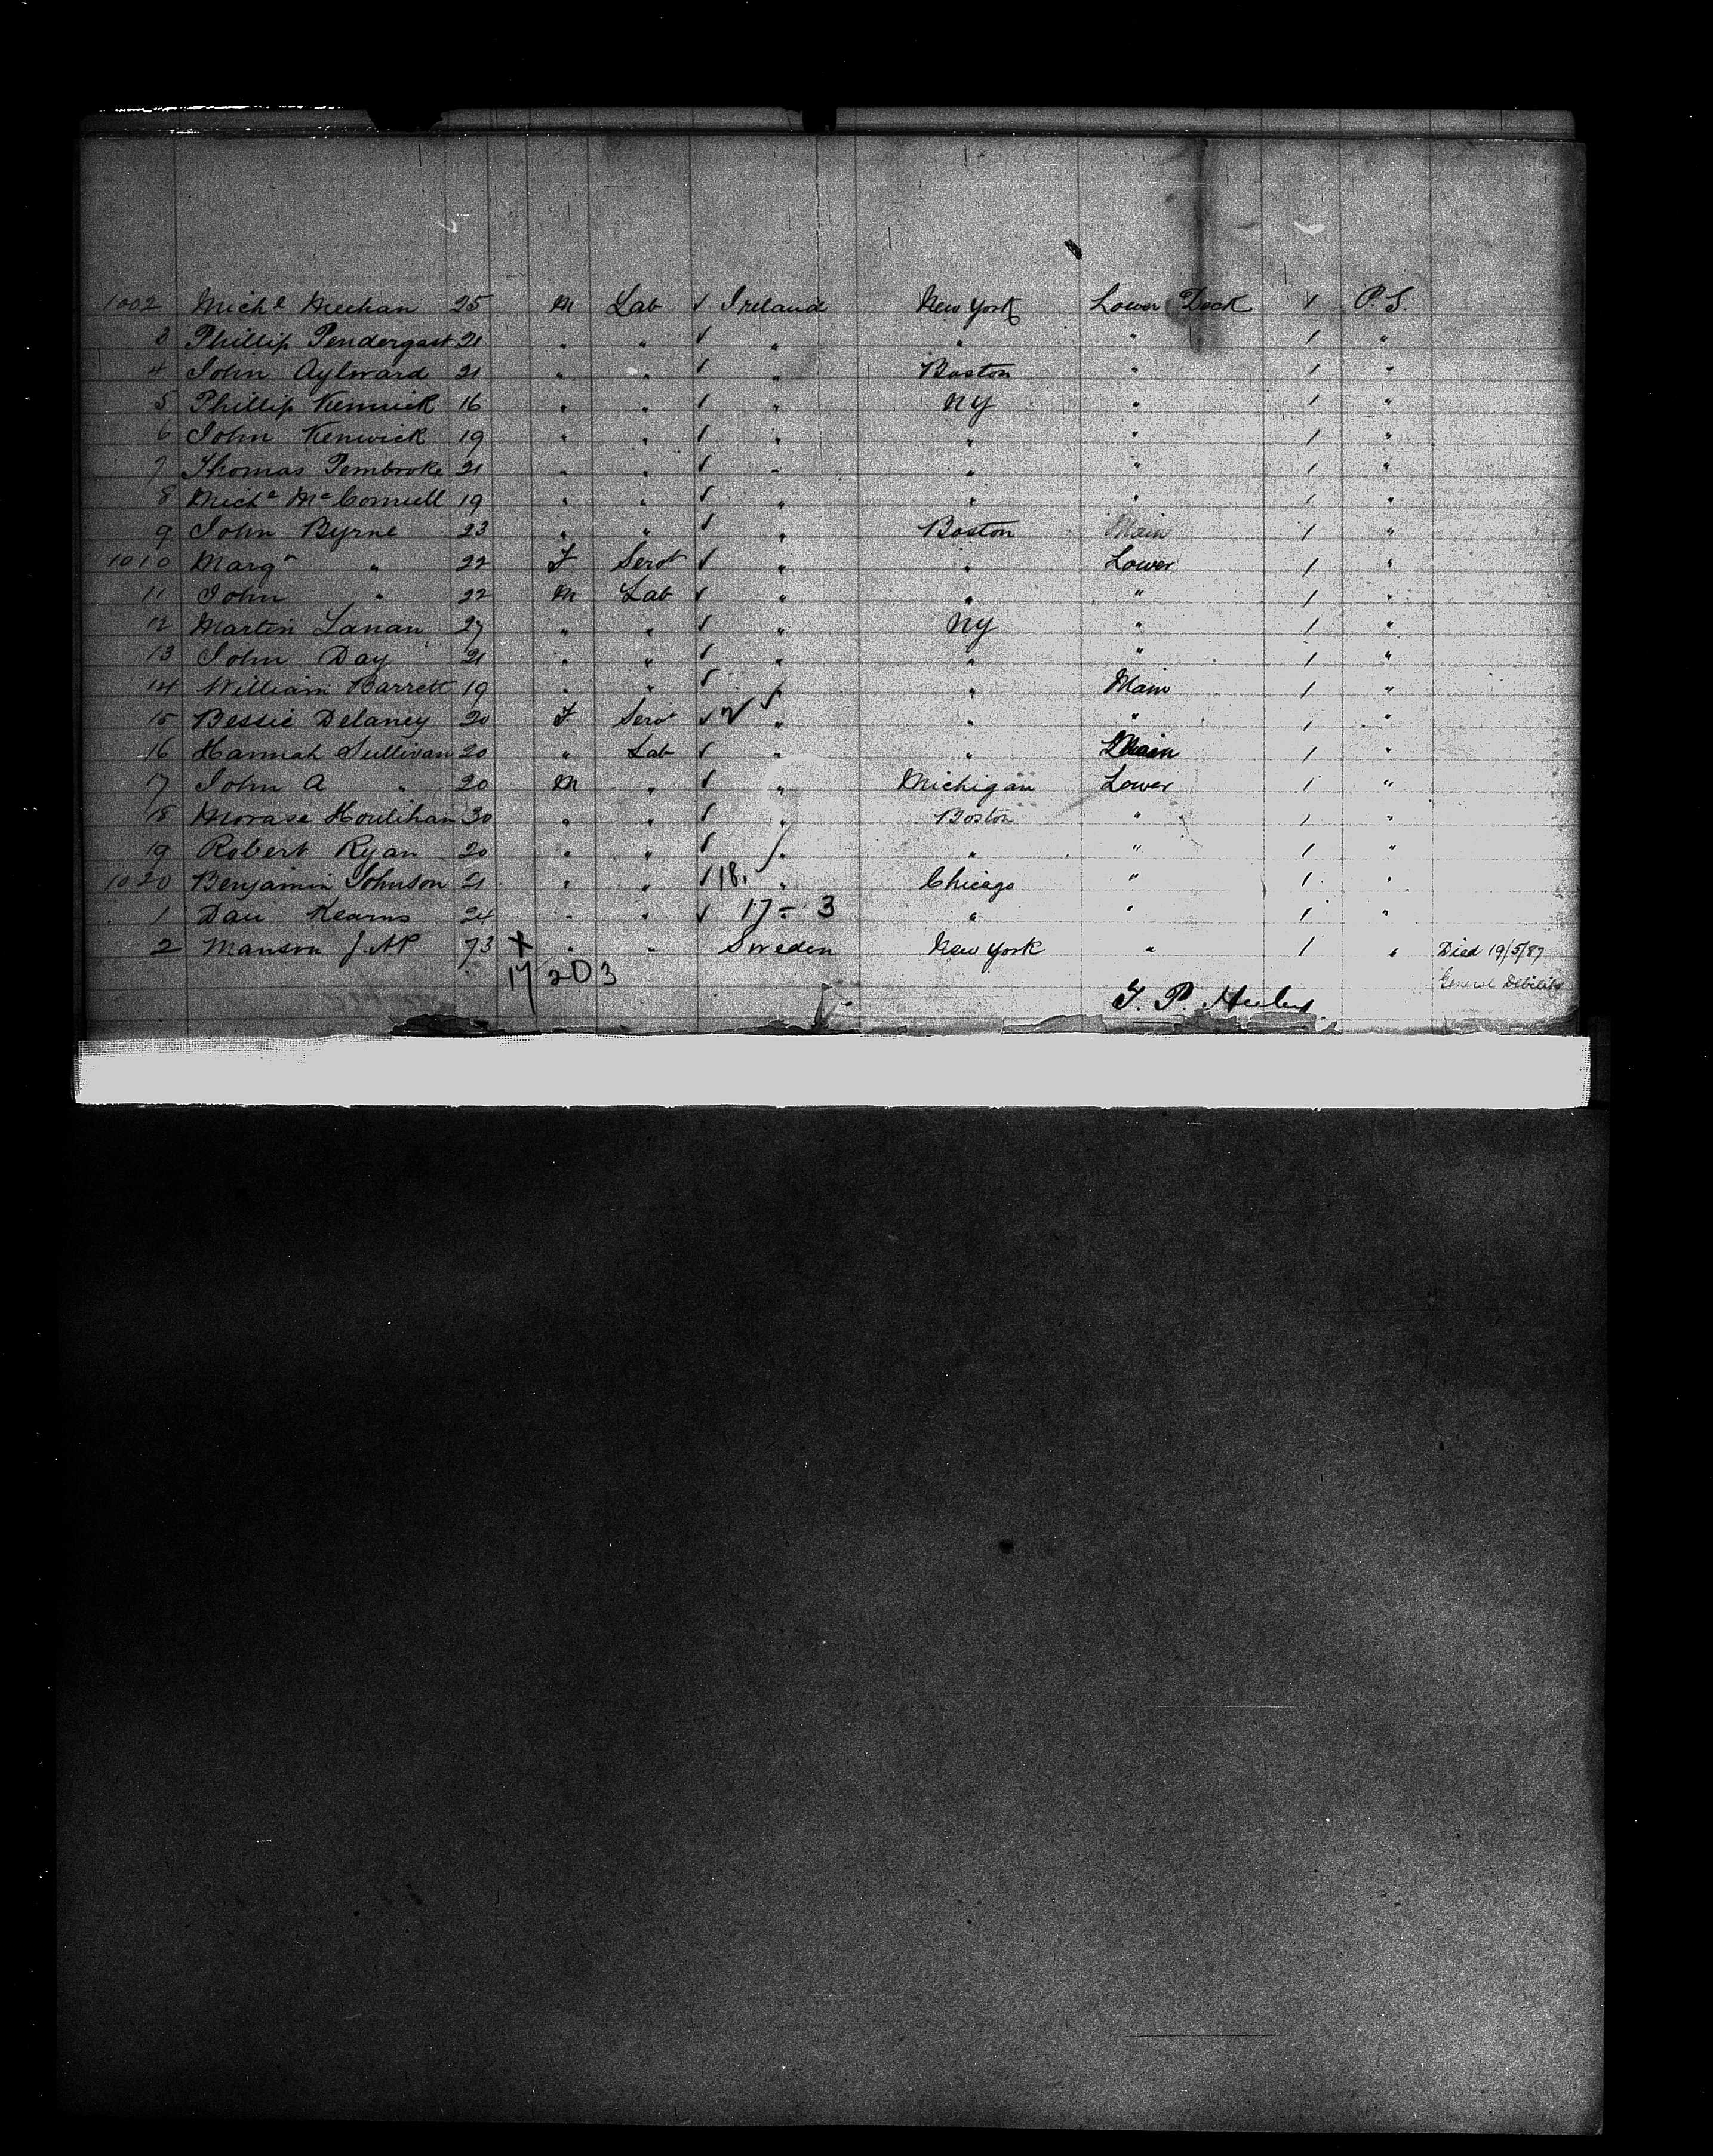 1002 Michl Meehan 25 M Lab √ Ireland New York Lower Deck 1 P.S.
3 Phillip Pendergast 21 " " √ " " " 1 "
4 John Aylward 21 " " √ " Boston " 1 "
5 Phillip Kenwick 16 " " √ " NY " 1 "
6 John Kenwick 19 " " √ " " " 1 "
7 Thomas Pembroke 21 " " √ " " " 1 "
8 Michl McConnell 19 " " √ " " " 1 "
9 John Byrne 23 " " √ " Boston Main 1 "
1010 Margt " 22 F Servt √ " " Lower 1 "
11 John " 22 M Lab √ " " " 1 "
12 Martin Lanan 27 " " √ " NY " 1 "
13 John Day 21 " " √ " " " 1 "
14 William Barrett 19 " " √ " " Main 1 "
15 Bessie Delaney 20 F Servt √ √ " " " 1 "
16 Hannah Sullivan 20 " Lab √ " " Main 1 "
17 John A " 20 M " √ " Michigan Lower 1 "
18 Houlihan 30 " " √ " Boston " 1 "
19 Robert Ryan 20 " " √ " " " 1 "
1020 Benjamin Johnson 21 " " √ 18. " Chicago " 1 "
1 Dan Kearns 24 " " √ 17 - 3 " " 1 "
2 Manson J. AP 73 X " " Sweden New York " 1 " Died 19/5/87
17 203 General Debility